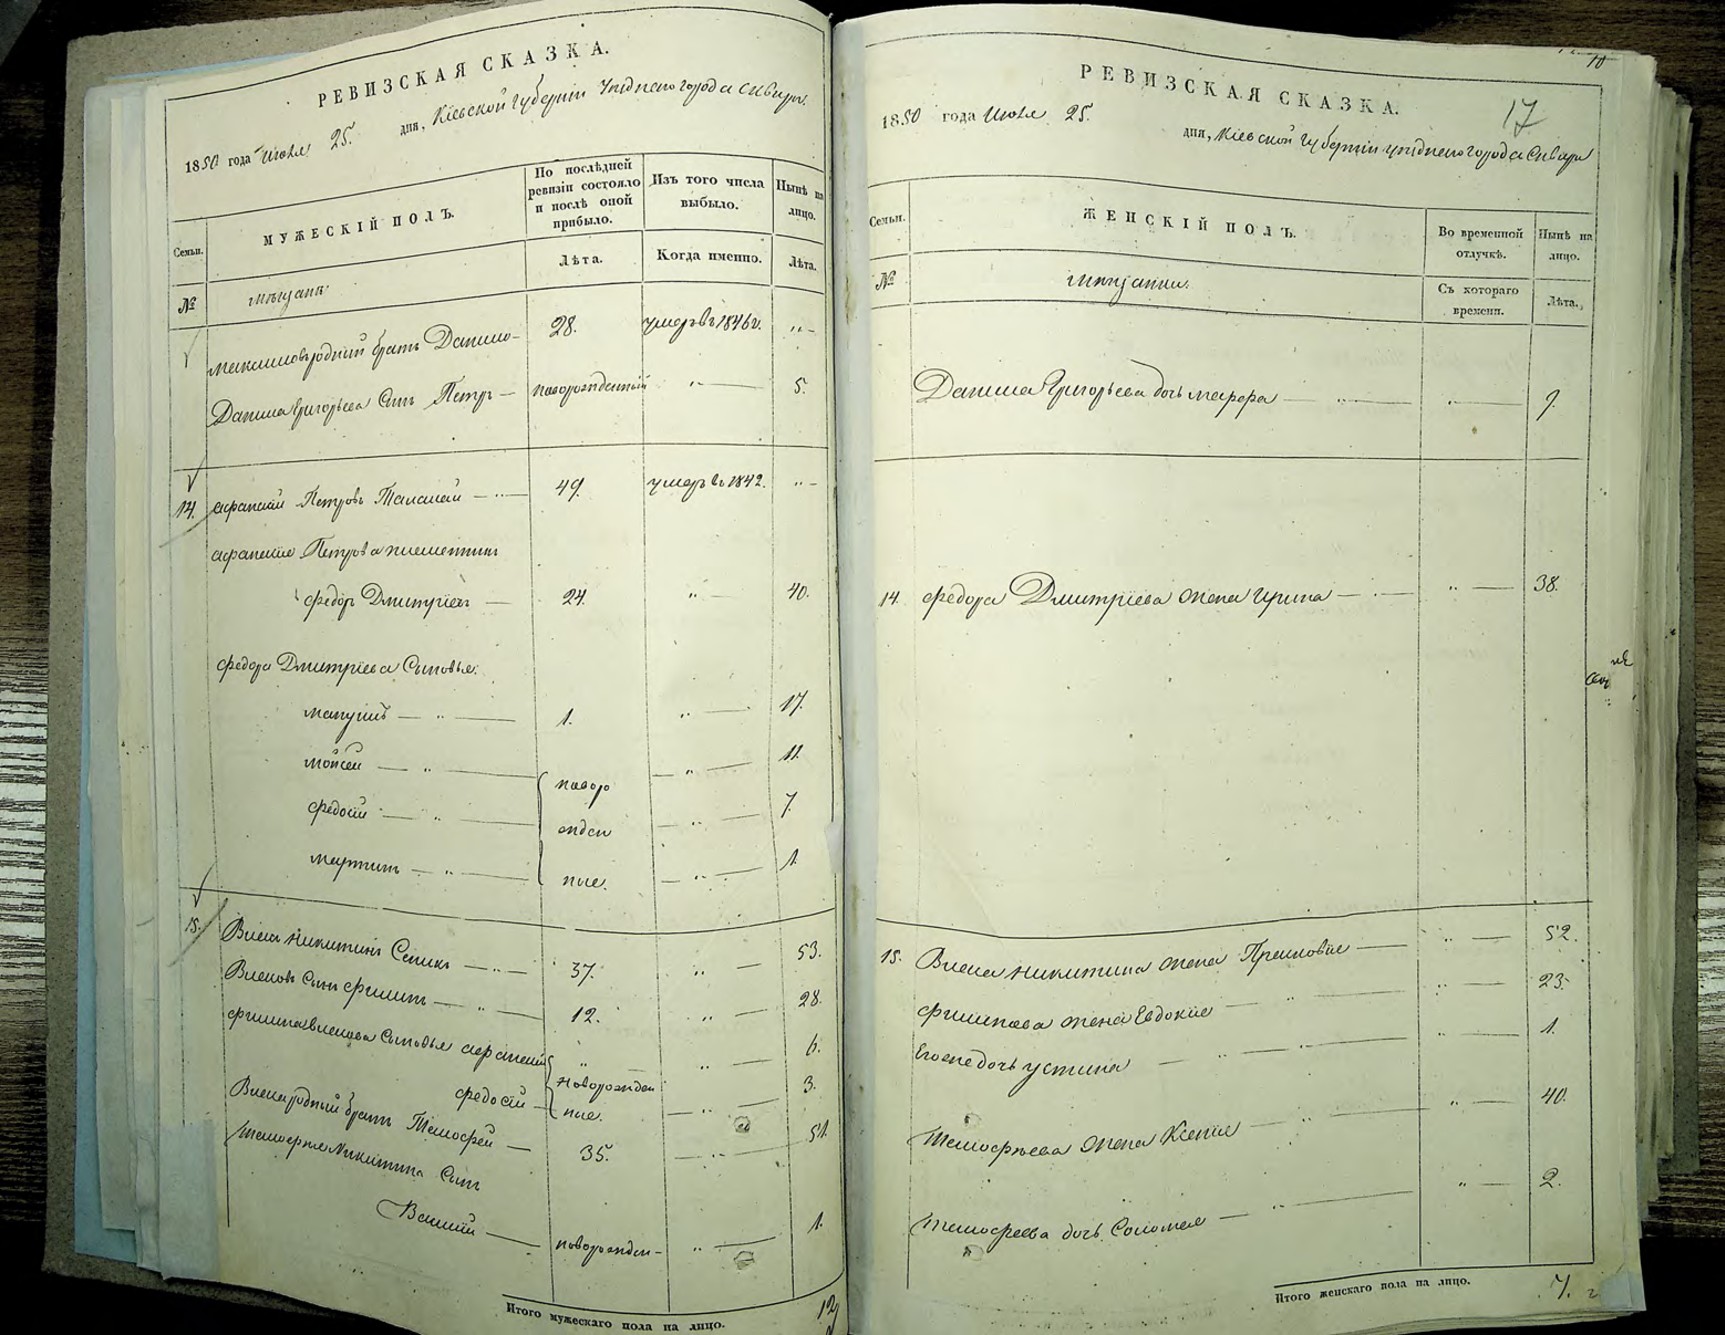 РЕВИЗСКАЯ СКАЗКА.
1850 года Июля 25. дня, Кіевской губерніи уѣзднаго города Сквиры
Семьи.
МУЖЕСКІЙ ПОЛЪ.
По послѣдней
ревизіи состояло
и послѣ оной
прибыло.
Изъ того числа
выбыло.
Нынѣ на
лицо.
Лѣта.
Когда именно.
Лѣта.
№
мѣщане:
родный братъ Данило 28. умеръ въ 1846 г. „ —
Данила Григорьева Сынъ Петръ — новорожденный „ — 5.
14. Афанасій Петровъ 49. умеръ въ 1842. „ —
Афанасія Петрова племянникъ
Федоръ Дмитріевъ — 24. „ — 40.
Федора Дмитріева Сыновья:
мануилъ — „ — 1. „ — 17.
мойсей — „ — — „ — 11.
новоро
Федосій — „ — — „ — 7.
жден
мартинъ — „ — — „ — 1.
ные.
15. Власъ Никитинъ — „ — 37. „ — 53.
Власовъ Сынъ Филипъ — „ — 12. „ — 28.
Филипа Власова Сыновья Афанасій „ „ — 6.
новорожден
Федосій — ные. — „ — 3.
Власа родный братъ Тимофей — 35. — „ — 51.
Тимофея Никитина Сынъ
Василій — новорожден- „ — 1.
Итого мужескаго пола на лицо. 12
РЕВИЗСКАЯ СКАЗКА.
17
1850 года Июля 25. дня, Кіевской губерніи уѣзднаго города Сквиры
Семьи.
ЖЕНСКІЙ ПОЛЪ.
Во временной
отлучкѣ.
Нынѣ на
лицо.
№
мѣщанки.
Съ котораго
времени.
Лѣта.
Данила Григорьева дочь марфа — „ — „ — 9.
14. Федора Дмитріева жена Ирина — „ — „ — 38.
15. Власа Никитина жена — „ — 52.
Филипова жена Евдокія — „ — „ — 23.
Его же дочь Устина — „ — „ — 1.
Тимофѣева жена Ксенія — „ — „ — 40.
Тимофеева дочь Соломея — „ — „ — 2.
Итого женскаго пола на лицо. 7.